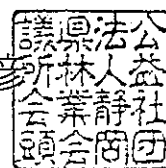 公益社団
法人静岡
県林業会
議所会頭